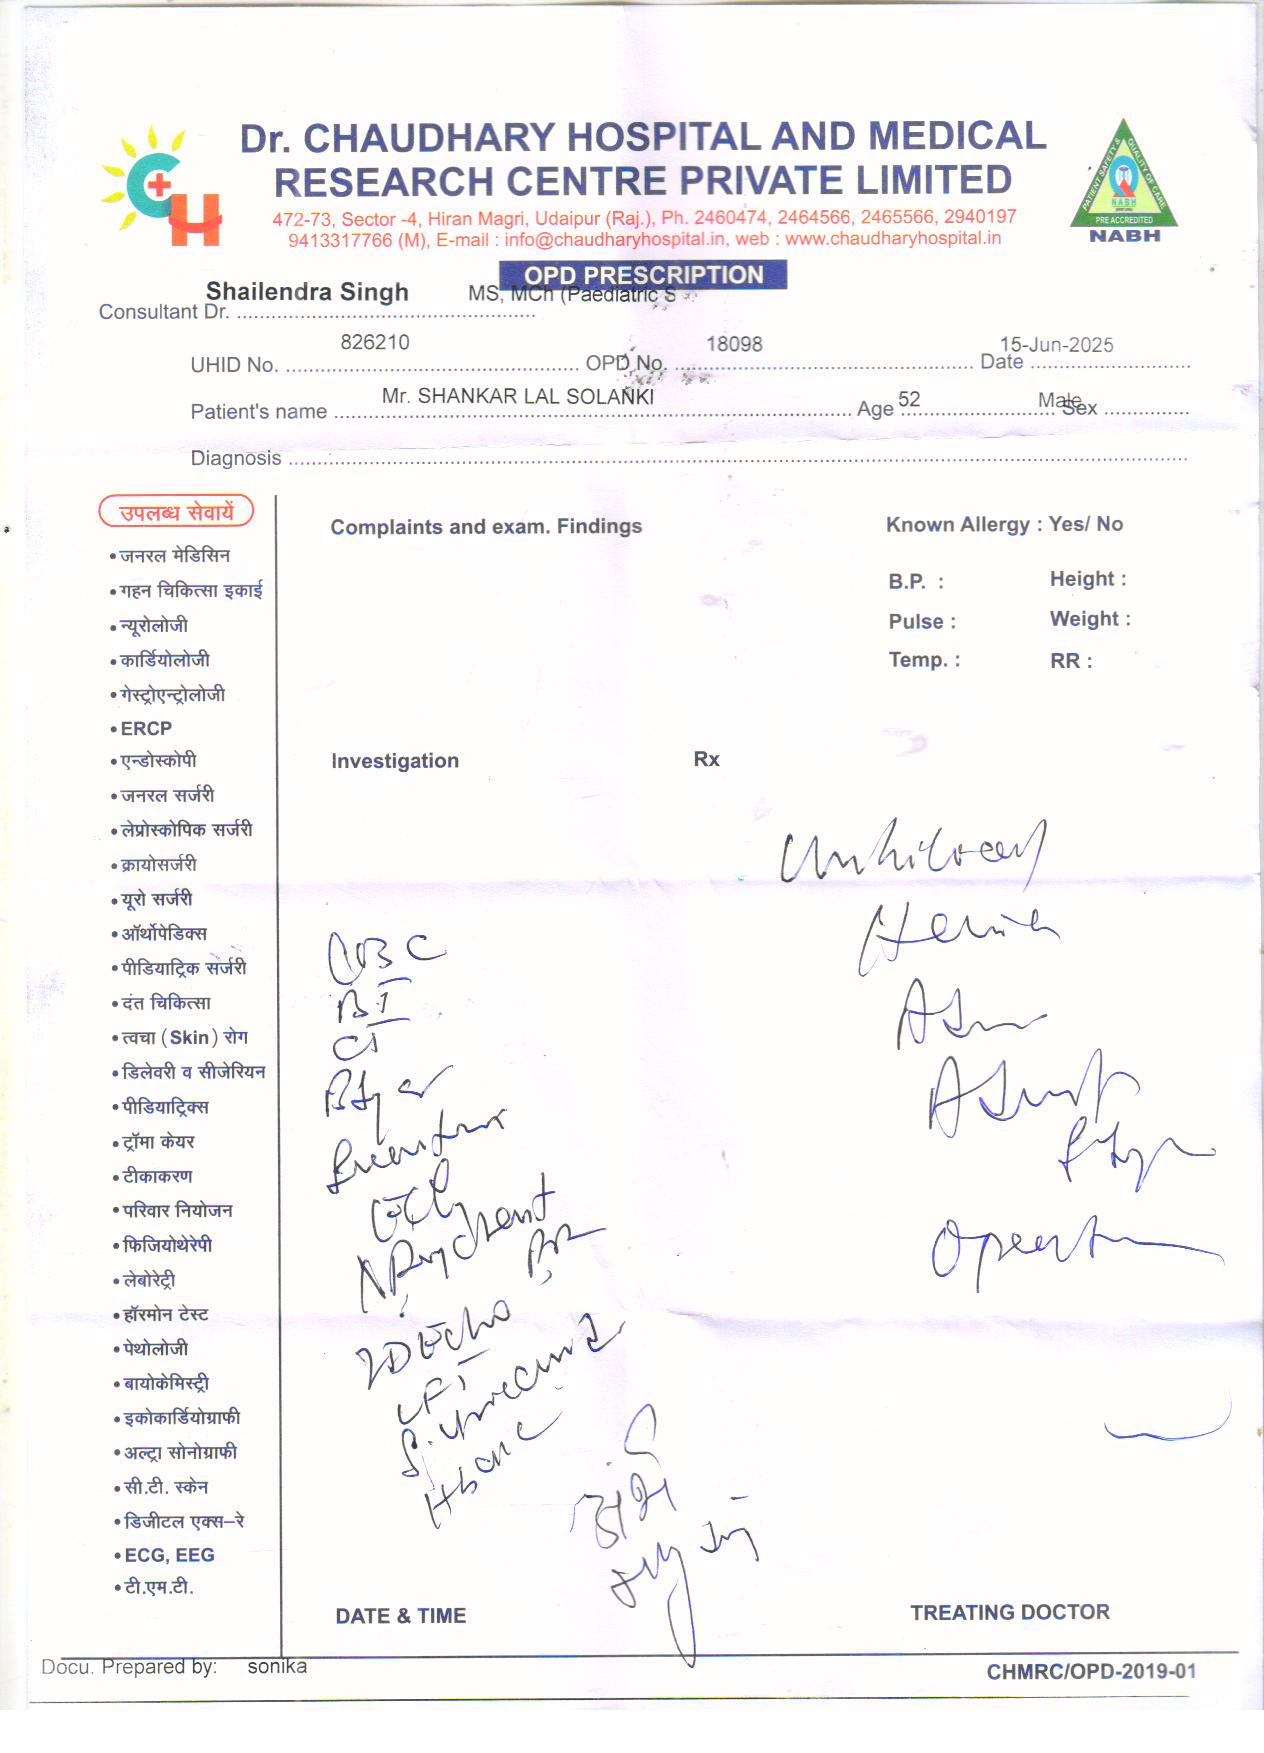 Dr. CHAUDHARY HOSPITAL AND MEDICAL
RESEARCH CENTRE PRIVATE LIMITED
472-73, Sector -4, Hiran Magri, Udaipur (Raj.), Ph. 2460474, 2464566, 2465566, 2940197
9413317766 (M), E-mail : info@chaudharyhospital.in, web : www.chaudharyhospital.in
PATIENT SAFETY & QUALITY OF CARE
NABH
PRE ACCREDITED
NABH
OPD PRESCRIPTION
Consultant Dr. Shailendra Singh MS, MCh (Paediatric S
UHID No. 826210 OPD No. 18098 Date 15-Jun-2025
Patient's name Mr. SHANKAR LAL SOLANKI Age 52 Sex Male
Diagnosis
उपलब्ध सेवायें
• जनरल मेडिसिन
• गहन चिकित्सा इकाई
• न्यूरोलोजी
• कार्डियोलोजी
• गेस्ट्रोएन्ट्रोलोजी
• ERCP
• एन्डोस्कोपी
• जनरल सर्जरी
• लेप्रोस्कोपिक सर्जरी
• क्रायोसर्जरी
• यूरो सर्जरी
• ऑर्थोपेडिक्स
• पीडियाट्रिक सर्जरी
• दंत चिकित्सा
• त्वचा (Skin) रोग
• डिलेवरी व सीजेरियन
• पीडियाट्रिक्स
• ट्रॉमा केयर
• टीकाकरण
• परिवार नियोजन
• फिजियोथेरेपी
• लेबोरेट्री
• हॉरमोन टेस्ट
• पेथोलोजी
• बायोकेमिस्ट्री
• इकोकार्डियोग्राफी
• अल्ट्रा सोनोग्राफी
• सी.टी. स्केन
• डिजीटल एक्स–रे
• ECG, EEG
• टी.एम.टी.
Complaints and exam. Findings
Known Allergy : Yes/ No
B.P. : Height :
Pulse : Weight :
Temp. : RR :
Investigation
CBC
BT
CT
ECG
2D Echo
LFT
Rx
DATE & TIME
TREATING DOCTOR
Docu. Prepared by: sonika
CHMRC/OPD-2019-01